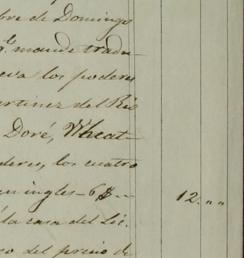 bre de Domingo
q.e mande tradu-
eva los poderes
artinez del Rio
Doré, Wheat-
deres, los cuatro
en ingles - 6 $ -- 12. " "
la casa del Lic.
so del precio de